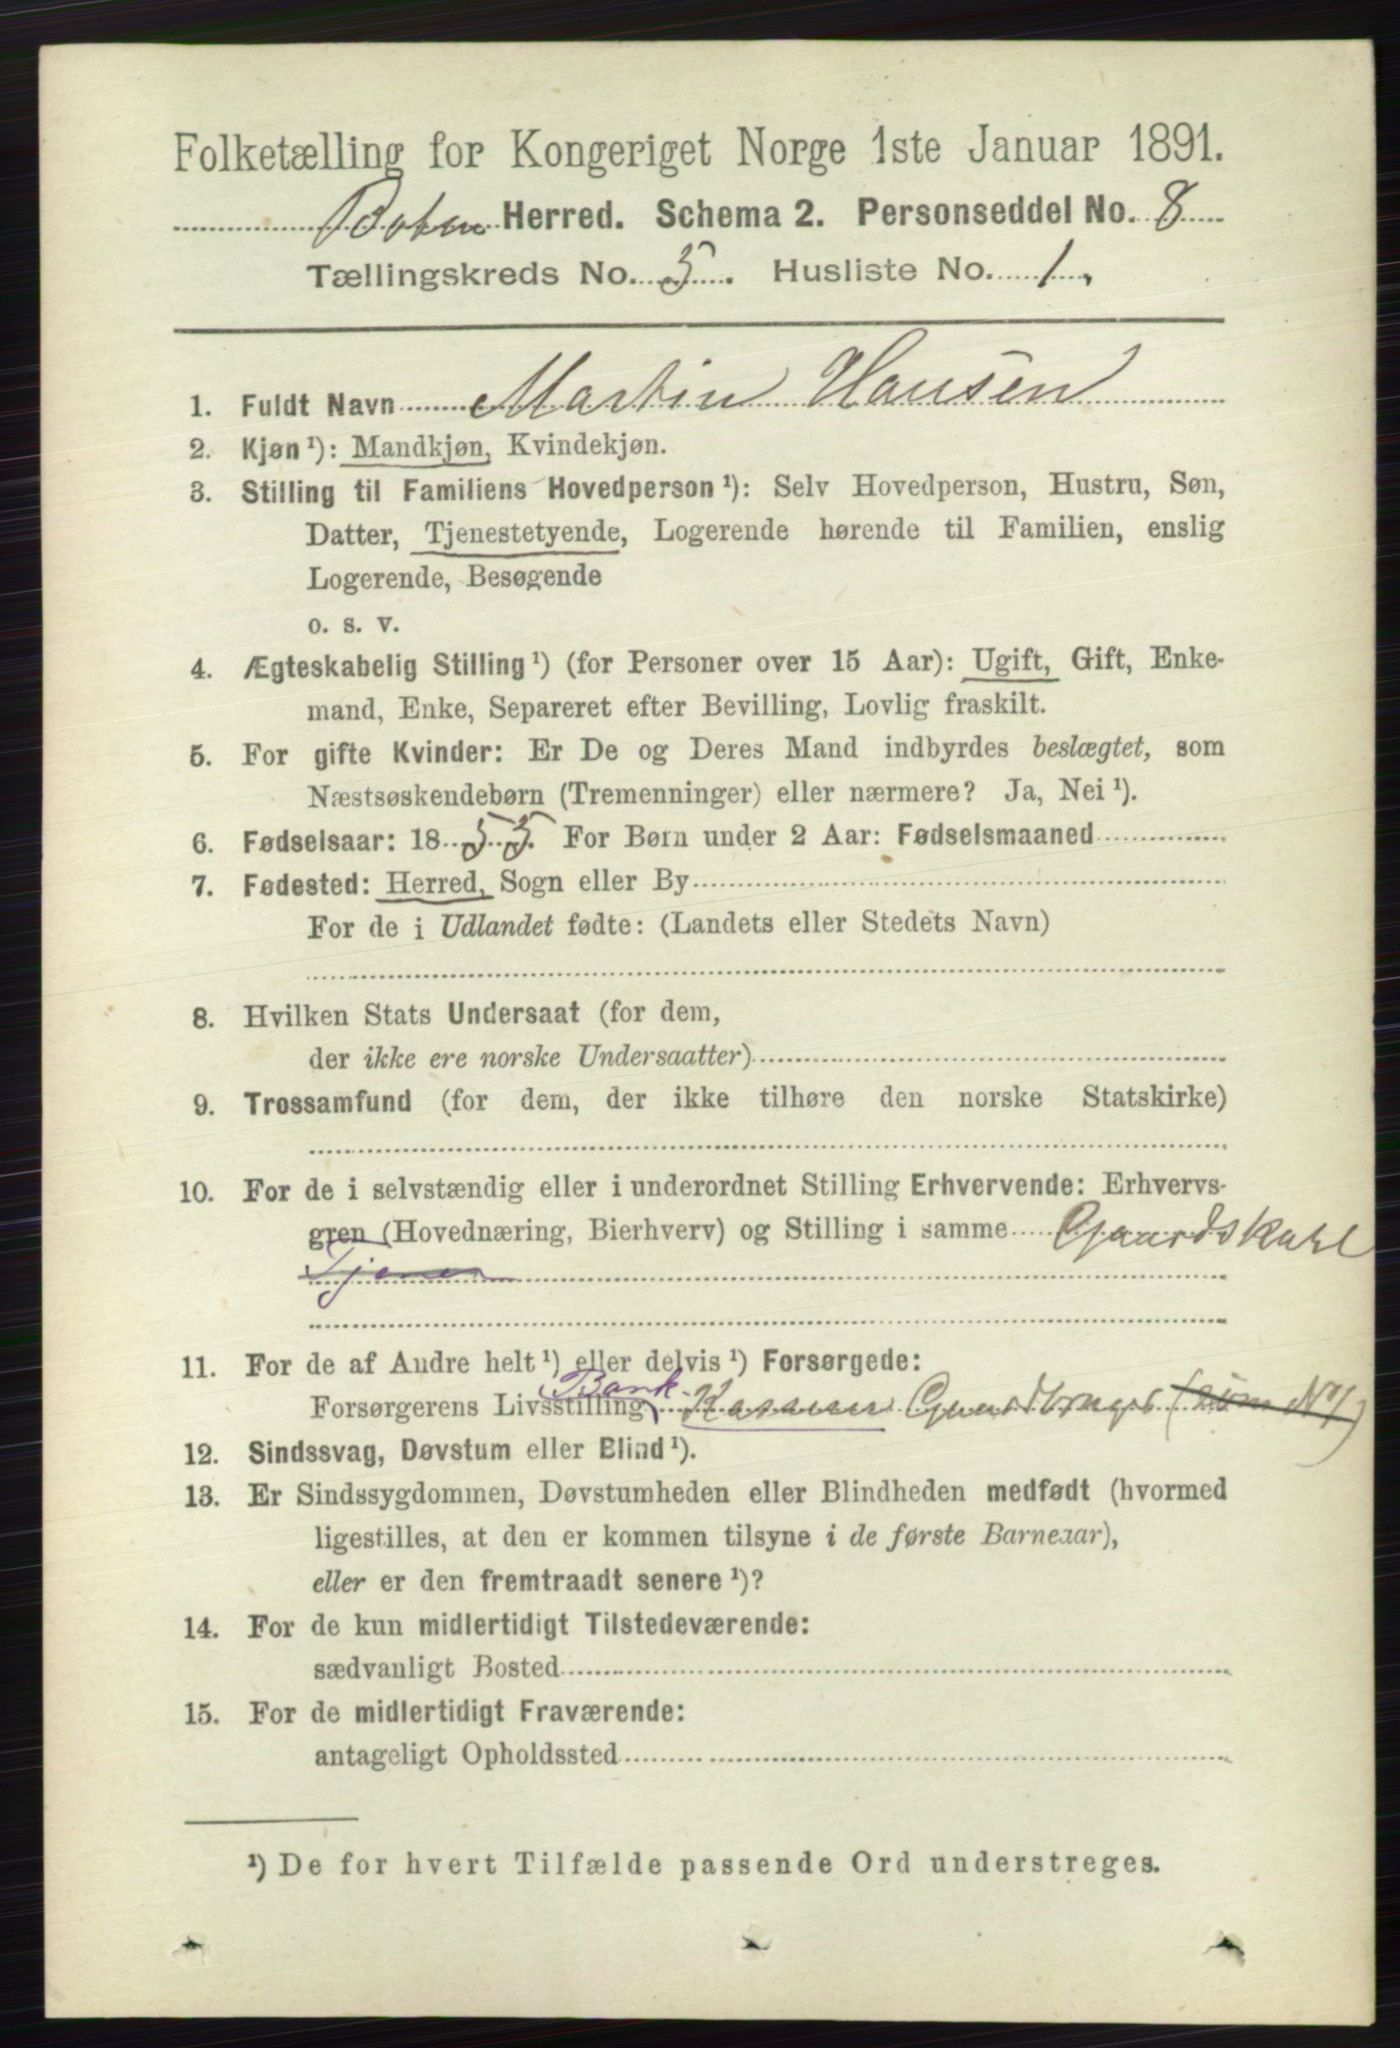 Folketælling for Kongeriget Norge 1ste Januar 1891.
Herred. Schema 2. Personseddel No. 8
Tællingskreds No. 5. Husliste No. 1.
1. Fuldt Navn Martin Hansen
2. Kjøn ¹): Mandkjøn, Kvindekjøn.
3. Stilling til Familiens Hovedperson ¹): Selv Hovedperson, Hustru, Søn,
Datter, Tjenestetyende, Logerende hørende til Familien, enslig
Logerende, Besøgende
o. s. v.
4. Ægteskabelig Stilling ¹) (for Personer over 15 Aar): Ugift, Gift, Enke-
mand, Enke, Separeret efter Bevilling, Lovlig fraskilt.
5. For gifte Kvinder: Er De og Deres Mand indbyrdes beslægtet, som
Næstsøskendebørn (Tremenninger) eller nærmere? Ja, Nei ¹).
6. Fødselsaar: 1855. For Børn under 2 Aar: Fødselsmaaned
7. Fødested: Herred, Sogn eller By
For de i Udlandet fødte: (Landets eller Stedets Navn)
8. Hvilken Stats Undersaat (for dem,
der ikke ere norske Undersaatter)
9. Trossamfund (for dem, der ikke tilhøre den norske Statskirke)
10. For de i selvstændig eller i underordnet Stilling Erhvervende: Erhvervs-
gren (Hovednæring, Bierhverv) og Stilling i samme Gaardskarl
Tjener
11. For de af Andre helt ¹) eller delvis ¹) Forsørgede:
Bank
Forsørgerens Livsstilling Gaardbruger (som N 1)
12. Sindssvag, Døvstum eller Blind ¹).
13. Er Sindssygdommen, Døvstumheden eller Blindheden medfødt (hvormed
ligestilles, at den er kommen tilsyne i de første Barneaar),
eller er den fremtraadt senere ¹)?
14. For de kun midlertidigt Tilstedeværende:
sædvanligt Bosted
15. For de midlertidigt Fraværende:
antageligt Opholdssted
¹) De for hvert Tilfælde passende Ord understreges.